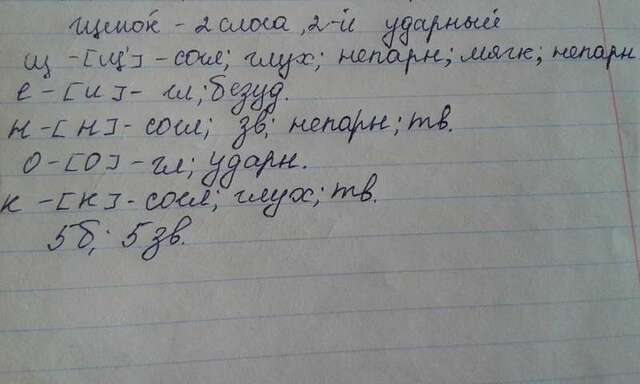 щенок - 2 слога, 2-й ударный
щ - [щ'] - согл; глух; непарн; мягк; непарн
е - [и] - гл; безуд.
н - [н] - согл; зв; непарн; тв.
о - [о] - гл; ударн.
к - [к] - согл; глух; тв.
5б; 5зв.